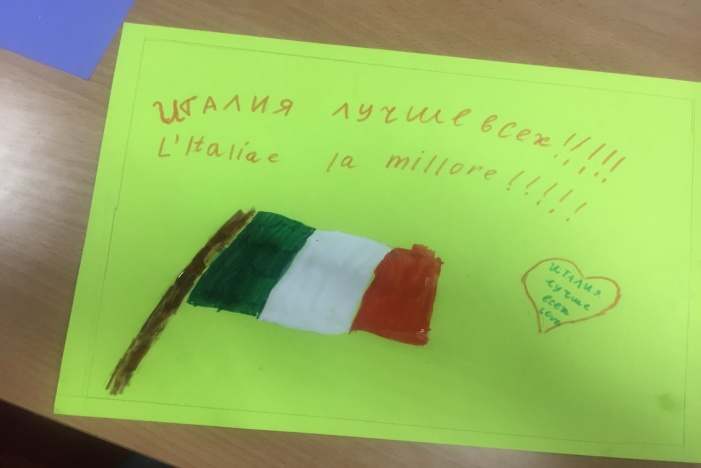 ИТАЛИЯ лучше всех!!!!!
L'Italiae la millore!!!!!
ИТАЛИЯ
лучше
всех
love